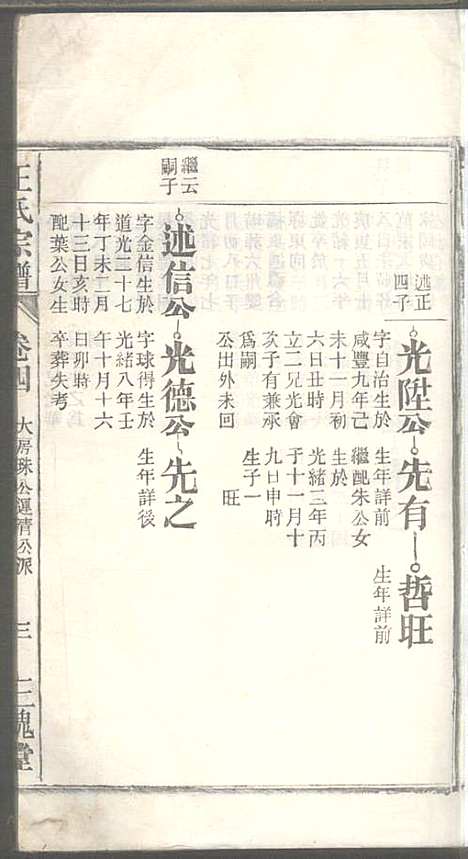 述正
四子
光陞公
字自治生於
咸豐九年己
未十一月初
六日丑時
立二兄光會
次子有兼承
爲嗣
公出外未回
先有
生年詳前
繼配朱公女
生於
光緒三年丙
子十一月十
九日申時
生子一
旺
哲旺
生年詳前
繼云
嗣子
述信公
字金信生於
道光二十七
年丁未二月
十三日亥時
配葉公女生
光德公
字球得生於
光緒八年壬
午十月十六
日卯時
卒葬失考
先之
生年詳後
王氏宗譜
卷四
大房珠公運清公派
三
三槐堂